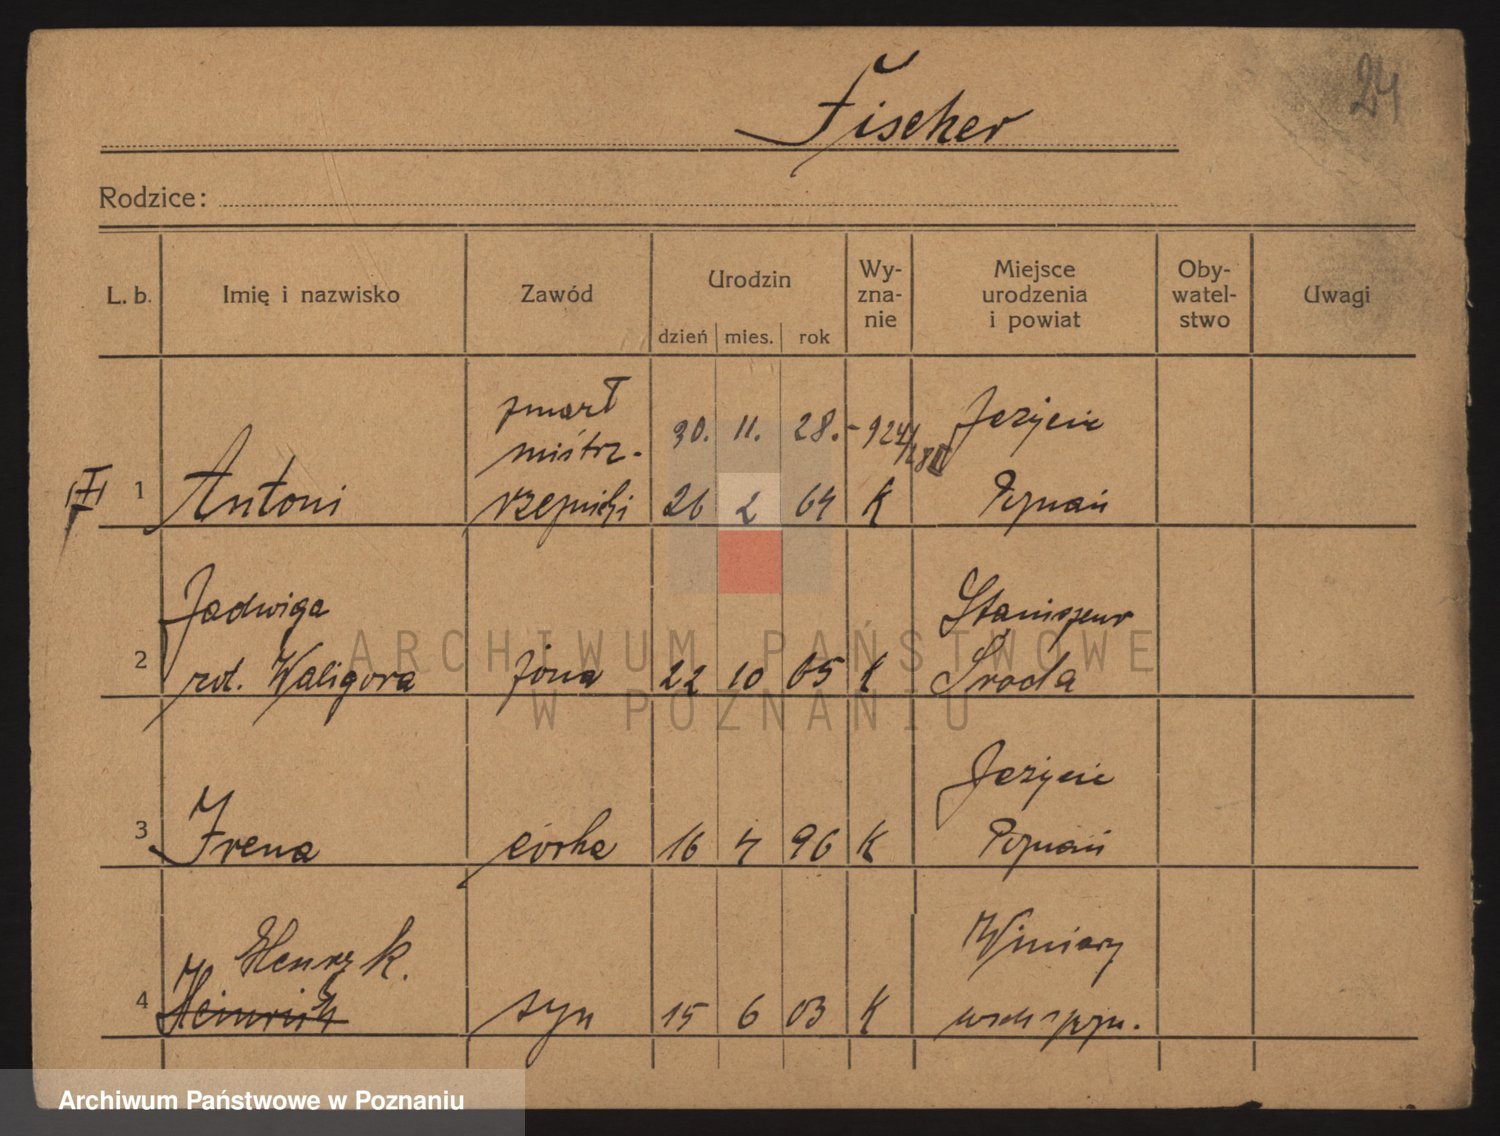 24
Fischer
Rodzice:
L. b. Imię i nazwisko Zawód Urodzin dzień mies. rok Wy-zna-nie Miejsce urodzenia i powiat Oby-watel-stwo Uwagi
zmarł 30. 11. 28. - 924/28 Jeżyce
mistrz.
1 Antoni rzeźnicki 26 2 64 K Poznań
Jadwiga Staniszew
2 rod. Waligora żona 22 10 65 K Środa
Jeżyce
3 Irena córka 16 4 96 K Poznań
Henryk. Winiary
4 Heinrich syn 15 6 03 K
ARCHIWUM PAŃSTWOWE
W POZNANIU
Archiwum Państwowe w Poznaniu